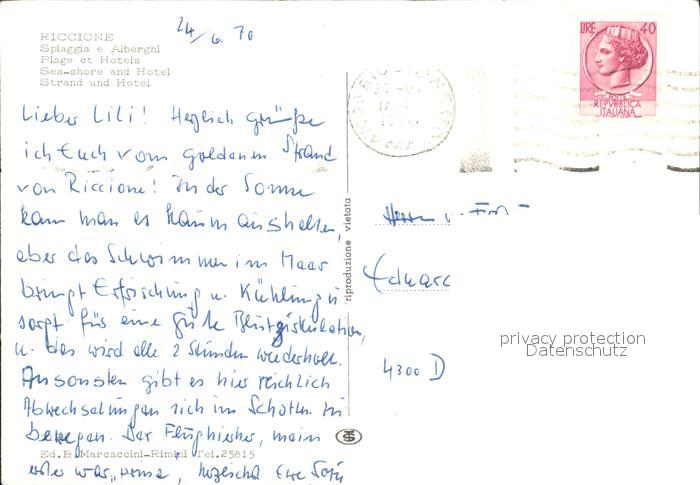 24/6. 70
RICCIONE
Spiaggia e Alberghi
Plage et Hotels
Sea-shore and Hotel
Strand und Hotel
LIRE 40
POSTE
REPVBBLICA
ITALIANA
Lieber Lili! Herzlich grüße
ich Euch vom goldenen Strand
von Riccione! In der Sonne
kann man es kaum aushalten,
aber das Schwimmen im Meer
bringt Erfrischung u. Kühlung u.
sorgt für eine gute Blutzirkulation,
u. das wird alle 2 Stunden wiederholt.
Ansonsten gibt es hier reichlich
Abwechselungen sich im Schatten zu
bewegen. Der Flug hierher, mein
erster war prima, herzlichst Eure
riproduzione vietata
Herrn u.
4300 D
privacy protection
Datenschutz
Ed. B. Marcaccini-Rimini Tel. 25815